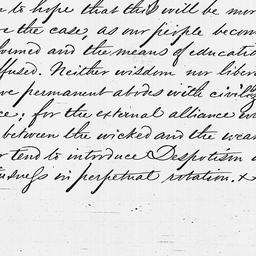 to hope that this will be mor
e the case, as our people becom
formed and the means of educatio
ffused. Neither wisdom nor liber
ve permanent abodes with civiliz
ce; for the external alliance
between the wicked and the wea
r tend to introduce Despotism
iousness in perpetual rotation. x